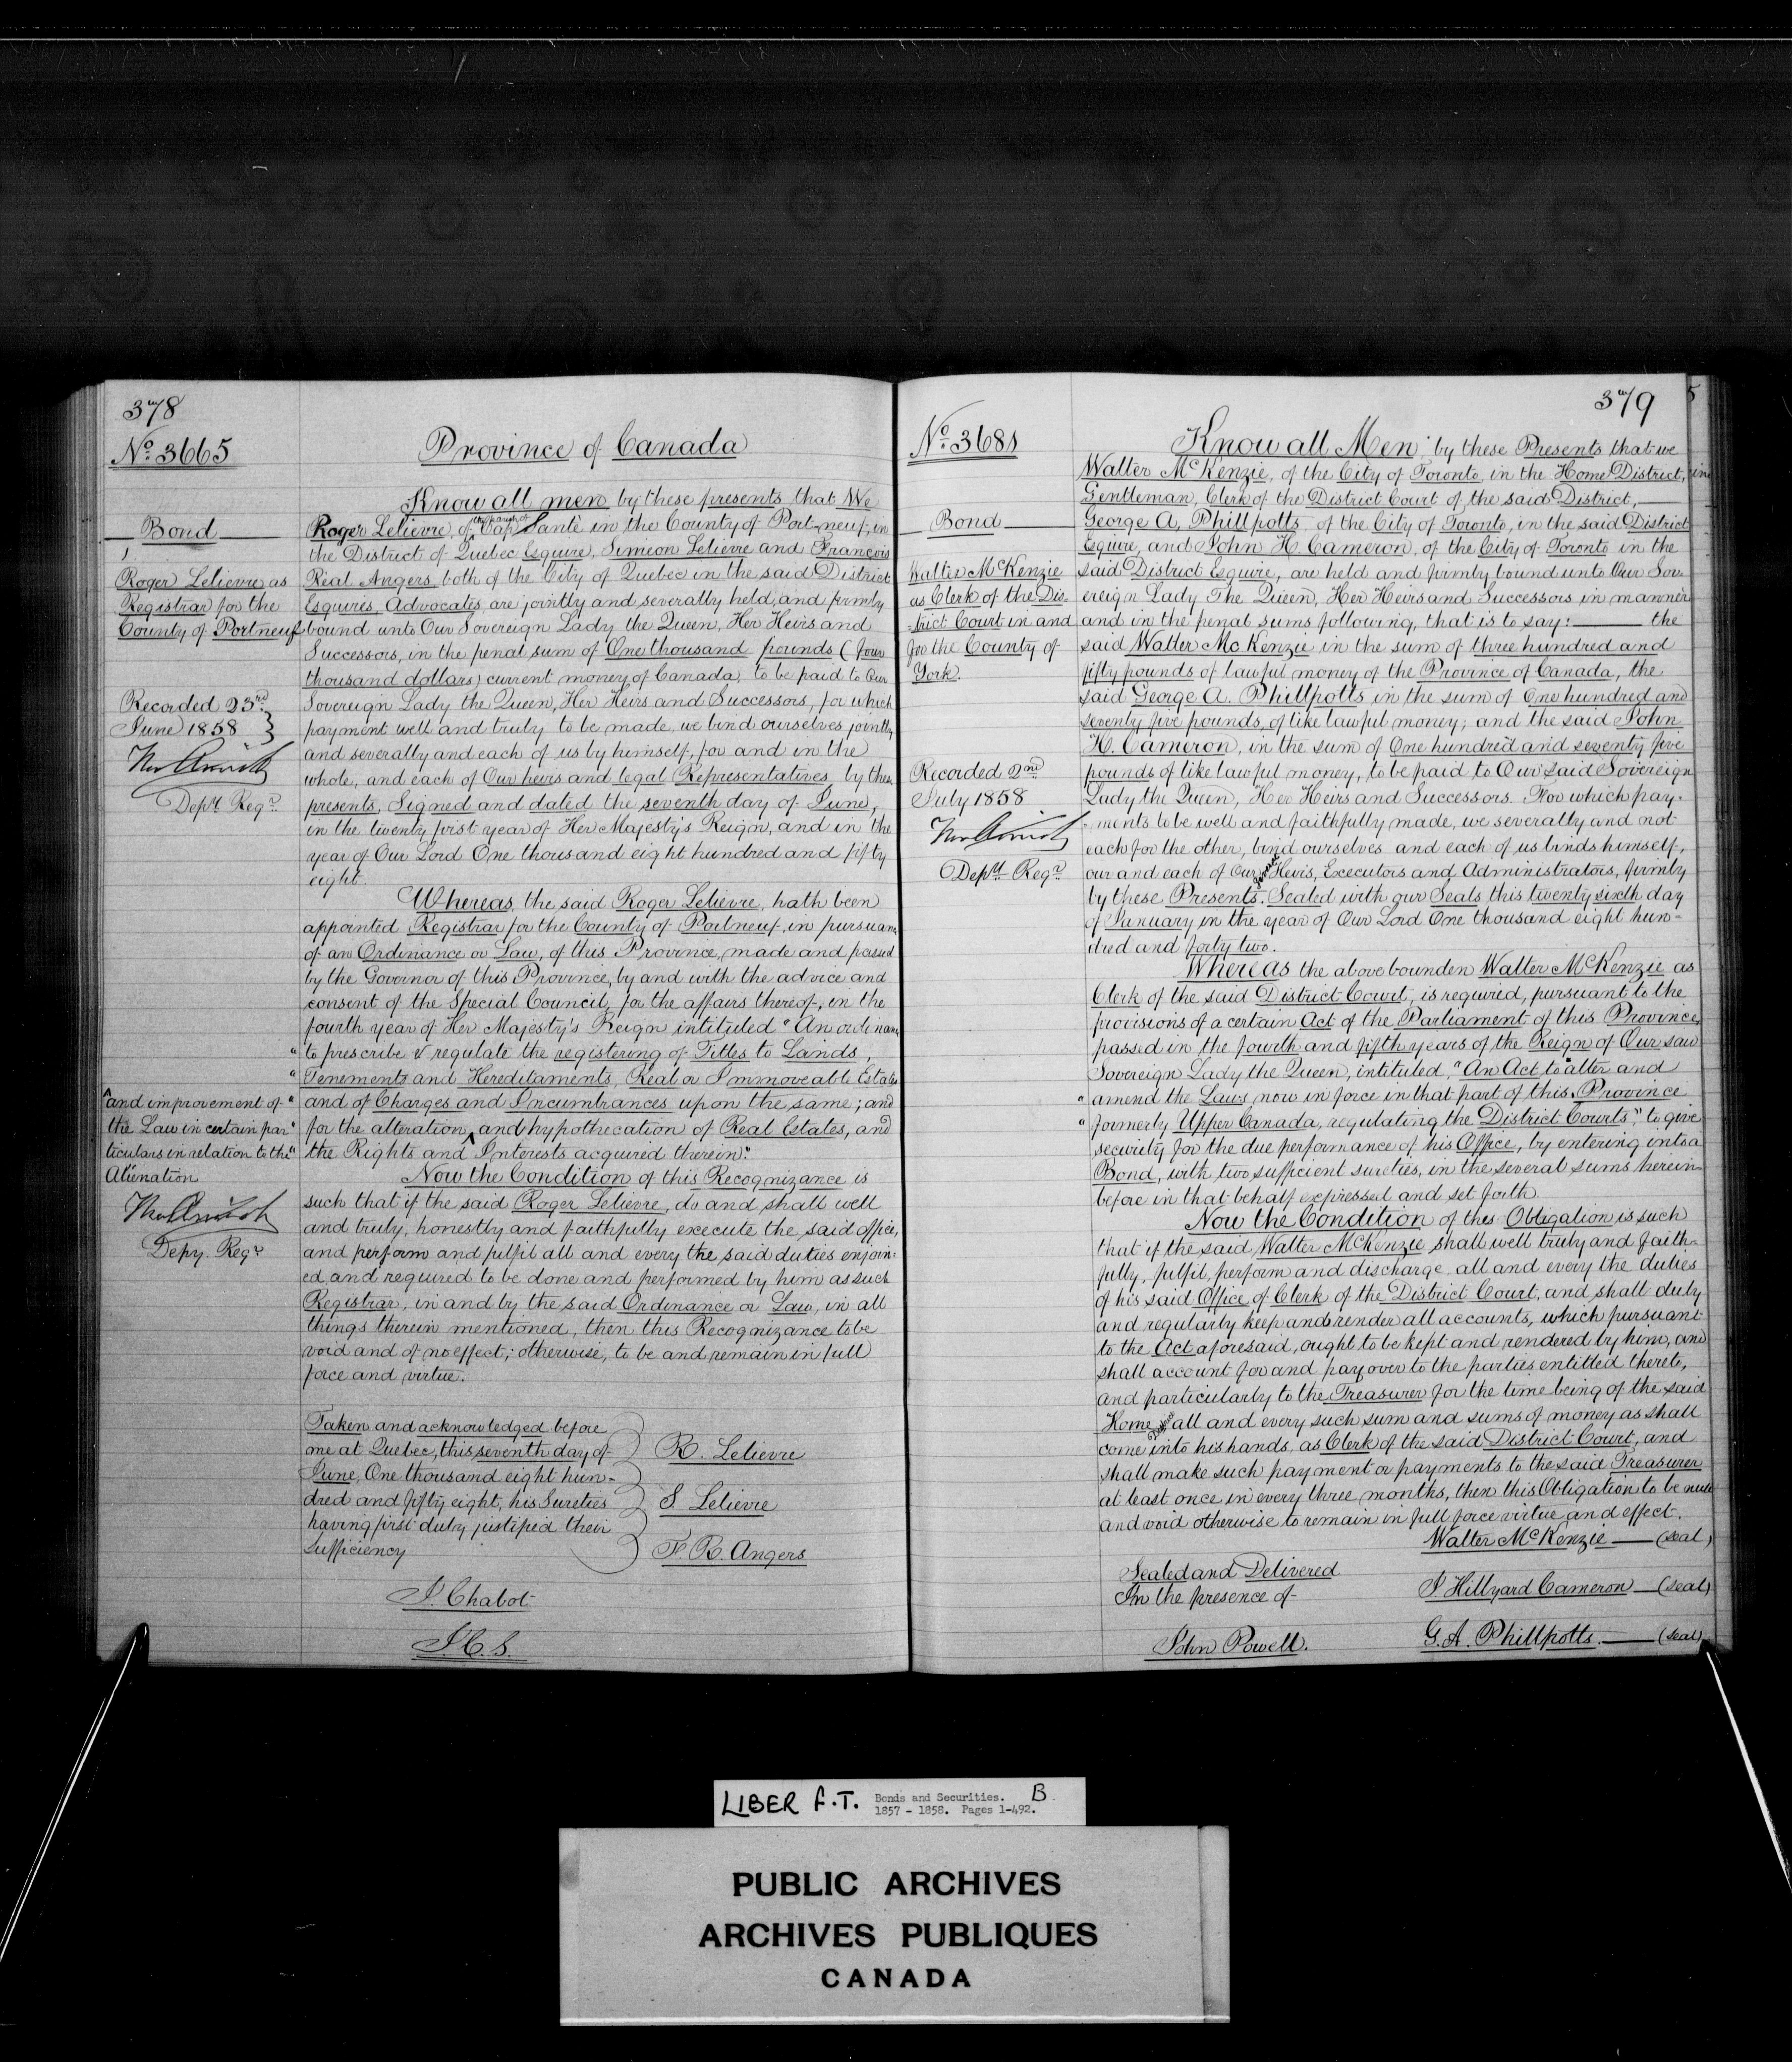 378
No. 3665
Province of Canada
Bond
Roger Lelievre as
Registrar for the
County of Portneuf
Recorded 23rd
June 1858
Depy Regr
Know all men by these presents that We
Roger Lelievre, of the Parish of Cap Santé in the County of Port-neuf, in
the District of Quebec Esquire, Simeon Lelievre and François
Réal Angers both of the City of Quebec in the said District
Esquires, Advocates, are jointly and severally held, and firmly
bound unto Our Sovereign Lady the Queen, Her Heirs and
Successors, in the penal sum of One thousand pounds (four
thousand dollars) current money of Canada, to be paid to Our
Sovereign Lady the Queen, Her Heirs and Successors, for which
payment well and truly to be made, we bind ourselves jointly
and severally and each of us by himself, for and in the
whole, and each of Our heirs and legal Representatives, by these
presents, Signed and dated the seventh day of June,
in the twenty first year of Her Majesty's Reign, and in the
year of Our Lord One thousand eight hundred and fifty
eight.
Whereas, the said Roger Lelievre, hath been
appointed Registrar for the County of Portneuf, in pursuance
of an Ordinance or Law, of this Province, made and passed
by the Governor of this Province, by and with the advice and
consent of the Special Council, for the affairs thereof, in the
fourth year of Her Majesty's Reign intituled "An ordinance
" to prescribe & regulate the registering of Titles to Lands,
" Tenements and Hereditaments, Real or Immoveable Estates
" and of Charges and Incumbrances upon the same; and
" for the alteration ^ and hypothecation of Real Estates, and
" the Rights and Interests acquired therein."
^ and improvement of
the Law in certain par
ticulars in relation to the
Aliénation
Depy. Regr
Now the Condition of this Recognizance is
such that if the said Roger Lelievre, do and shall well
and truly, honestly and faithfully execute the said office,
and perform and fulfil all and every the said duties enjoin-
ed and required to be done and performed by him as such
Registrar, in and by the said Ordinance or Law, in all
things therein mentioned, then this Recognizance to be
void and of no effect; otherwise, to be and remain in full
force and virtue.
Taken and acknowledged before
me at Quebec, this seventh day of
June, One thousand eight hun-
dred and fifty eight, his Sureties
having first duly justified their
sufficiency
R. Lelievre
S. Lelievre
F. R. Angers
J. Chabot
J.C.S.
379
No. 3681
Bond
Walter McKenzie
as Clerk of the Dis-
-trict Court in and
for the County of
York.
Recorded 2nd
July 1858
Depy Regr
Know all Men by these Presents that we
Walter McKenzie, of the City of Toronto in the Home District,
Gentleman, Clerk of the District Court of the said District,
George A. Phillpotts of the City of Toronto, in the said District
Esquire, and John H. Cameron, of the City of Toronto in the
said District Esquire, are held and firmly bound unto Our Sov-
ereign Lady The Queen, Her Heirs and Successors in manner
and in the penal sums following, that is to say: the
said Walter McKenzie in the sum of three hundred and
fifty pounds of lawful money of the Province of Canada, the
said George A. Phillpotts in the sum of One hundred and
seventy five pounds, of like lawful money; and the said John
H. Cameron, in the sum of One hundred and seventy five
pounds of like lawful money, to be paid to Our said Sovereign
Lady the Queen, Her Heirs and Successors. For which pay-
-ments to be well and faithfully made, we severally and not
each for the other, bind ourselves and each of us binds himself,
our and each of Our Heirs, Executors and Administrators, firmly
by these Presents. Sealed with our Seals this twenty sixth day
of January in the year of Our Lord One thousand eight hun-
dred and forty two.
Whereas the above bounden Walter McKenzie as
Clerk of the said District Court, is required, pursuant to the
provisions of a certain Act of the Parliament of this Province,
passed in the fourth and fifth years of the Reign of Our said
Sovereign Lady the Queen, intituled, "An Act to alter and
" amend the Laws now in force in that part of this Province
" formerly Upper Canada, regulating the District Courts", to give
security for the due performance of his Office, by entering into a
Bond, with two sufficient sureties, in the several sums herein-
before in that behalf expressed and set forth.
Now the Condition of this Obligation is such
that if the said Walter McKenzie shall well truly and faith-
fully, fulfil, perform and discharge all and every the duties
of his said Office of Clerk of the District Court, and shall duly
and regularly keep and render all accounts, which pursuant
to the Act aforesaid, ought to be kept and rendered by him, and
shall account for and pay over to the parties entitled thereto,
and particularly to the Treasurer for the time being of the said
Home District all and every such sum and sums of money as shall
come into his hands, as Clerk of the said District Court, and
shall make such payment or payments to the said Treasurer
at least once in every three months, then this Obligation to be null
and void otherwise to remain in full force virtue and effect.
Walter McKenzie (seal)
Sealed and Delivered
In the presence of
J Hillyard Cameron (seal)
John Powell.
G. A. Phillpotts. (seal)
LIBER F.T. Bonds and Securities. B.
1857 - 1858. Pages 1-492.
PUBLIC ARCHIVES
ARCHIVES PUBLIQUES
CANADA